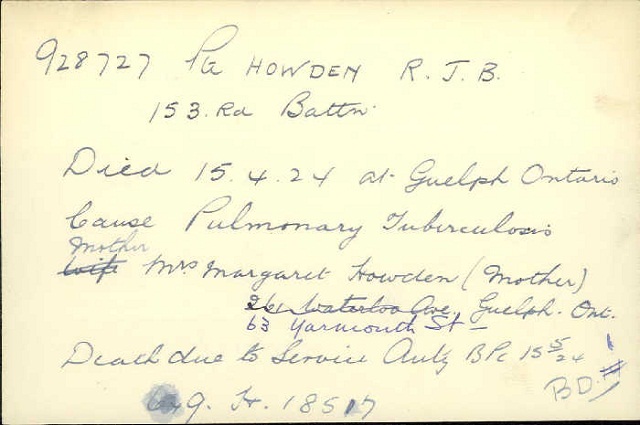 928727 Pte HOWDEN R. J. B.
153.Rd Battn.
Died 15.4.24 at Guelph Ontario
Cause Pulmonary Tuberculosis
Mother
Wife Mrs Margaret Howden (Mother)
Waterloo Ave, Guelph. Ont.
63 Yarmouth St
Death due to Service Auty BPC 15 5/24
BD.
9. H. 18517